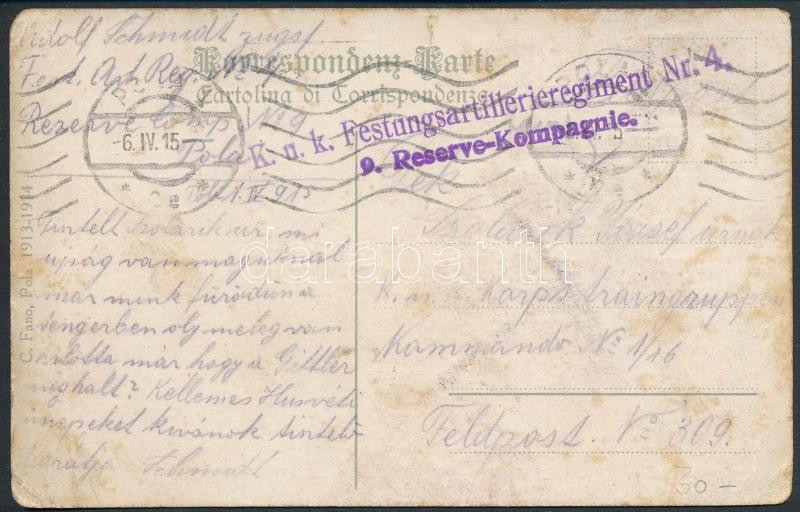 Adolf Schmidt zugsf.
Fest. Art. Reg. No 4
Reserve Comp No 9
Pola
Korrespondenz-Karte
Cartolina di Corrispondenza
K. u. k. Festungsartillerieregiment Nr. 4.
9. Reserve-Kompagnie.
POLA
-6.IV.15
Pola 1.IV 915
Tisztelt Szolarik ur mi
ujság van maguknál
már menk fürödün a
tengerben oly meleg van
hallotta már hogy a Gittler
meghalt? Kellemes Husvéti
ünepeket kivánok tisztelö
barátja Schmidt
József urnak
K. u. k. Korpstraingruppen
Kommando No 1/16
Feldpost. No 309.
C. Fano, Pola 1913-1914
30 –
darabanth